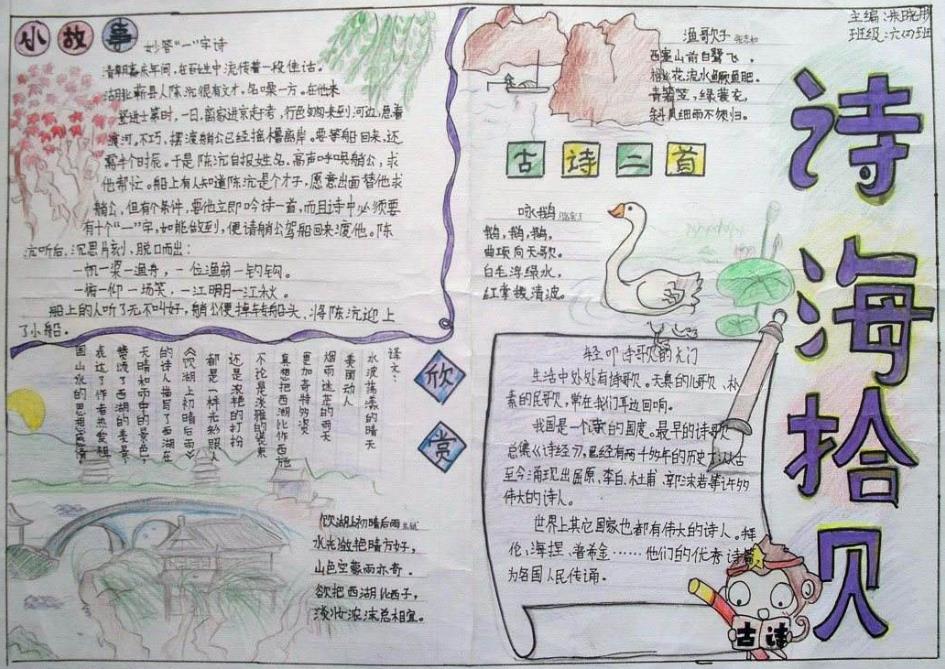 诗海拾贝
主编:朱晓彤
班级:六(四)班
小故事
妙答“一”字诗
清朝嘉庆年间,在民生中流传着一段佳话。
湖北蕲县人陈沆很有才,名噪一方。在他未
登进士第时,一日,离家进京赶考,行色匆匆来到河边,急着
渡河。不巧,摆渡艄公已经摇橹离岸。要等船回来,还
需半个时辰。于是陈沆自报姓名,高声呼喊艄公,求
他帮忙。船上有人知道陈沆是个才子,愿意出面替他求
艄公,但有个条件,要他立即吟诗一首,而且诗中必须要
有十个“一”字,如能做到,便请艄公驾船回来渡他。陈
沆听后,沉思片刻,脱口而出:
一帆一桨一渔舟,一位渔翁一钓钩。
一俯一仰一场笑,一江明月一江秋。
船上的人听了无不叫好,艄公便掉转船头,将陈沆迎上
了小船。
渔歌子 张志和
西塞山前白鹭飞,
桃花流水鳜鱼肥。
青箬笠,绿蓑衣,
斜风细雨不须归。
古诗二首
咏鹅
鹅,鹅,鹅,
曲项向天歌。
白毛浮绿水,
红掌拨清波。
欣赏
译文:
水波荡漾的晴天
美丽动人
烟雨迷茫的雨天
更加奇特多姿
真想把西湖比作西施
不论是淡雅的装束
还是浓艳的打扮
都是一样光彩照人
《饮湖上初晴后雨》
的诗人描写了西湖在
天晴和雨中的景色,
赞流了西湖的美景,
表达了作者热爱祖
国山水的思想感情
饮湖上初晴后雨
水光潋艳晴方好,
山色空蒙雨亦奇。
欲把西湖比西子,
淡妆浓沫总相宜。
轻叩诗歌的大门
生活中处处有诗歌。天真的儿歌、朴
素的民歌,常在我们耳边回响。
我国是一个诗歌的国度。最早的诗歌
总集《诗经》,已经有两千多年的历史,从古
至今涌现出屈原、李白、杜甫、郭沫若等许多
伟大的诗人。
世界上其它国家也都有伟大的诗人。拜
伦、海捏、普希金……他们的优秀诗篇
为各国人民传诵。
古诗